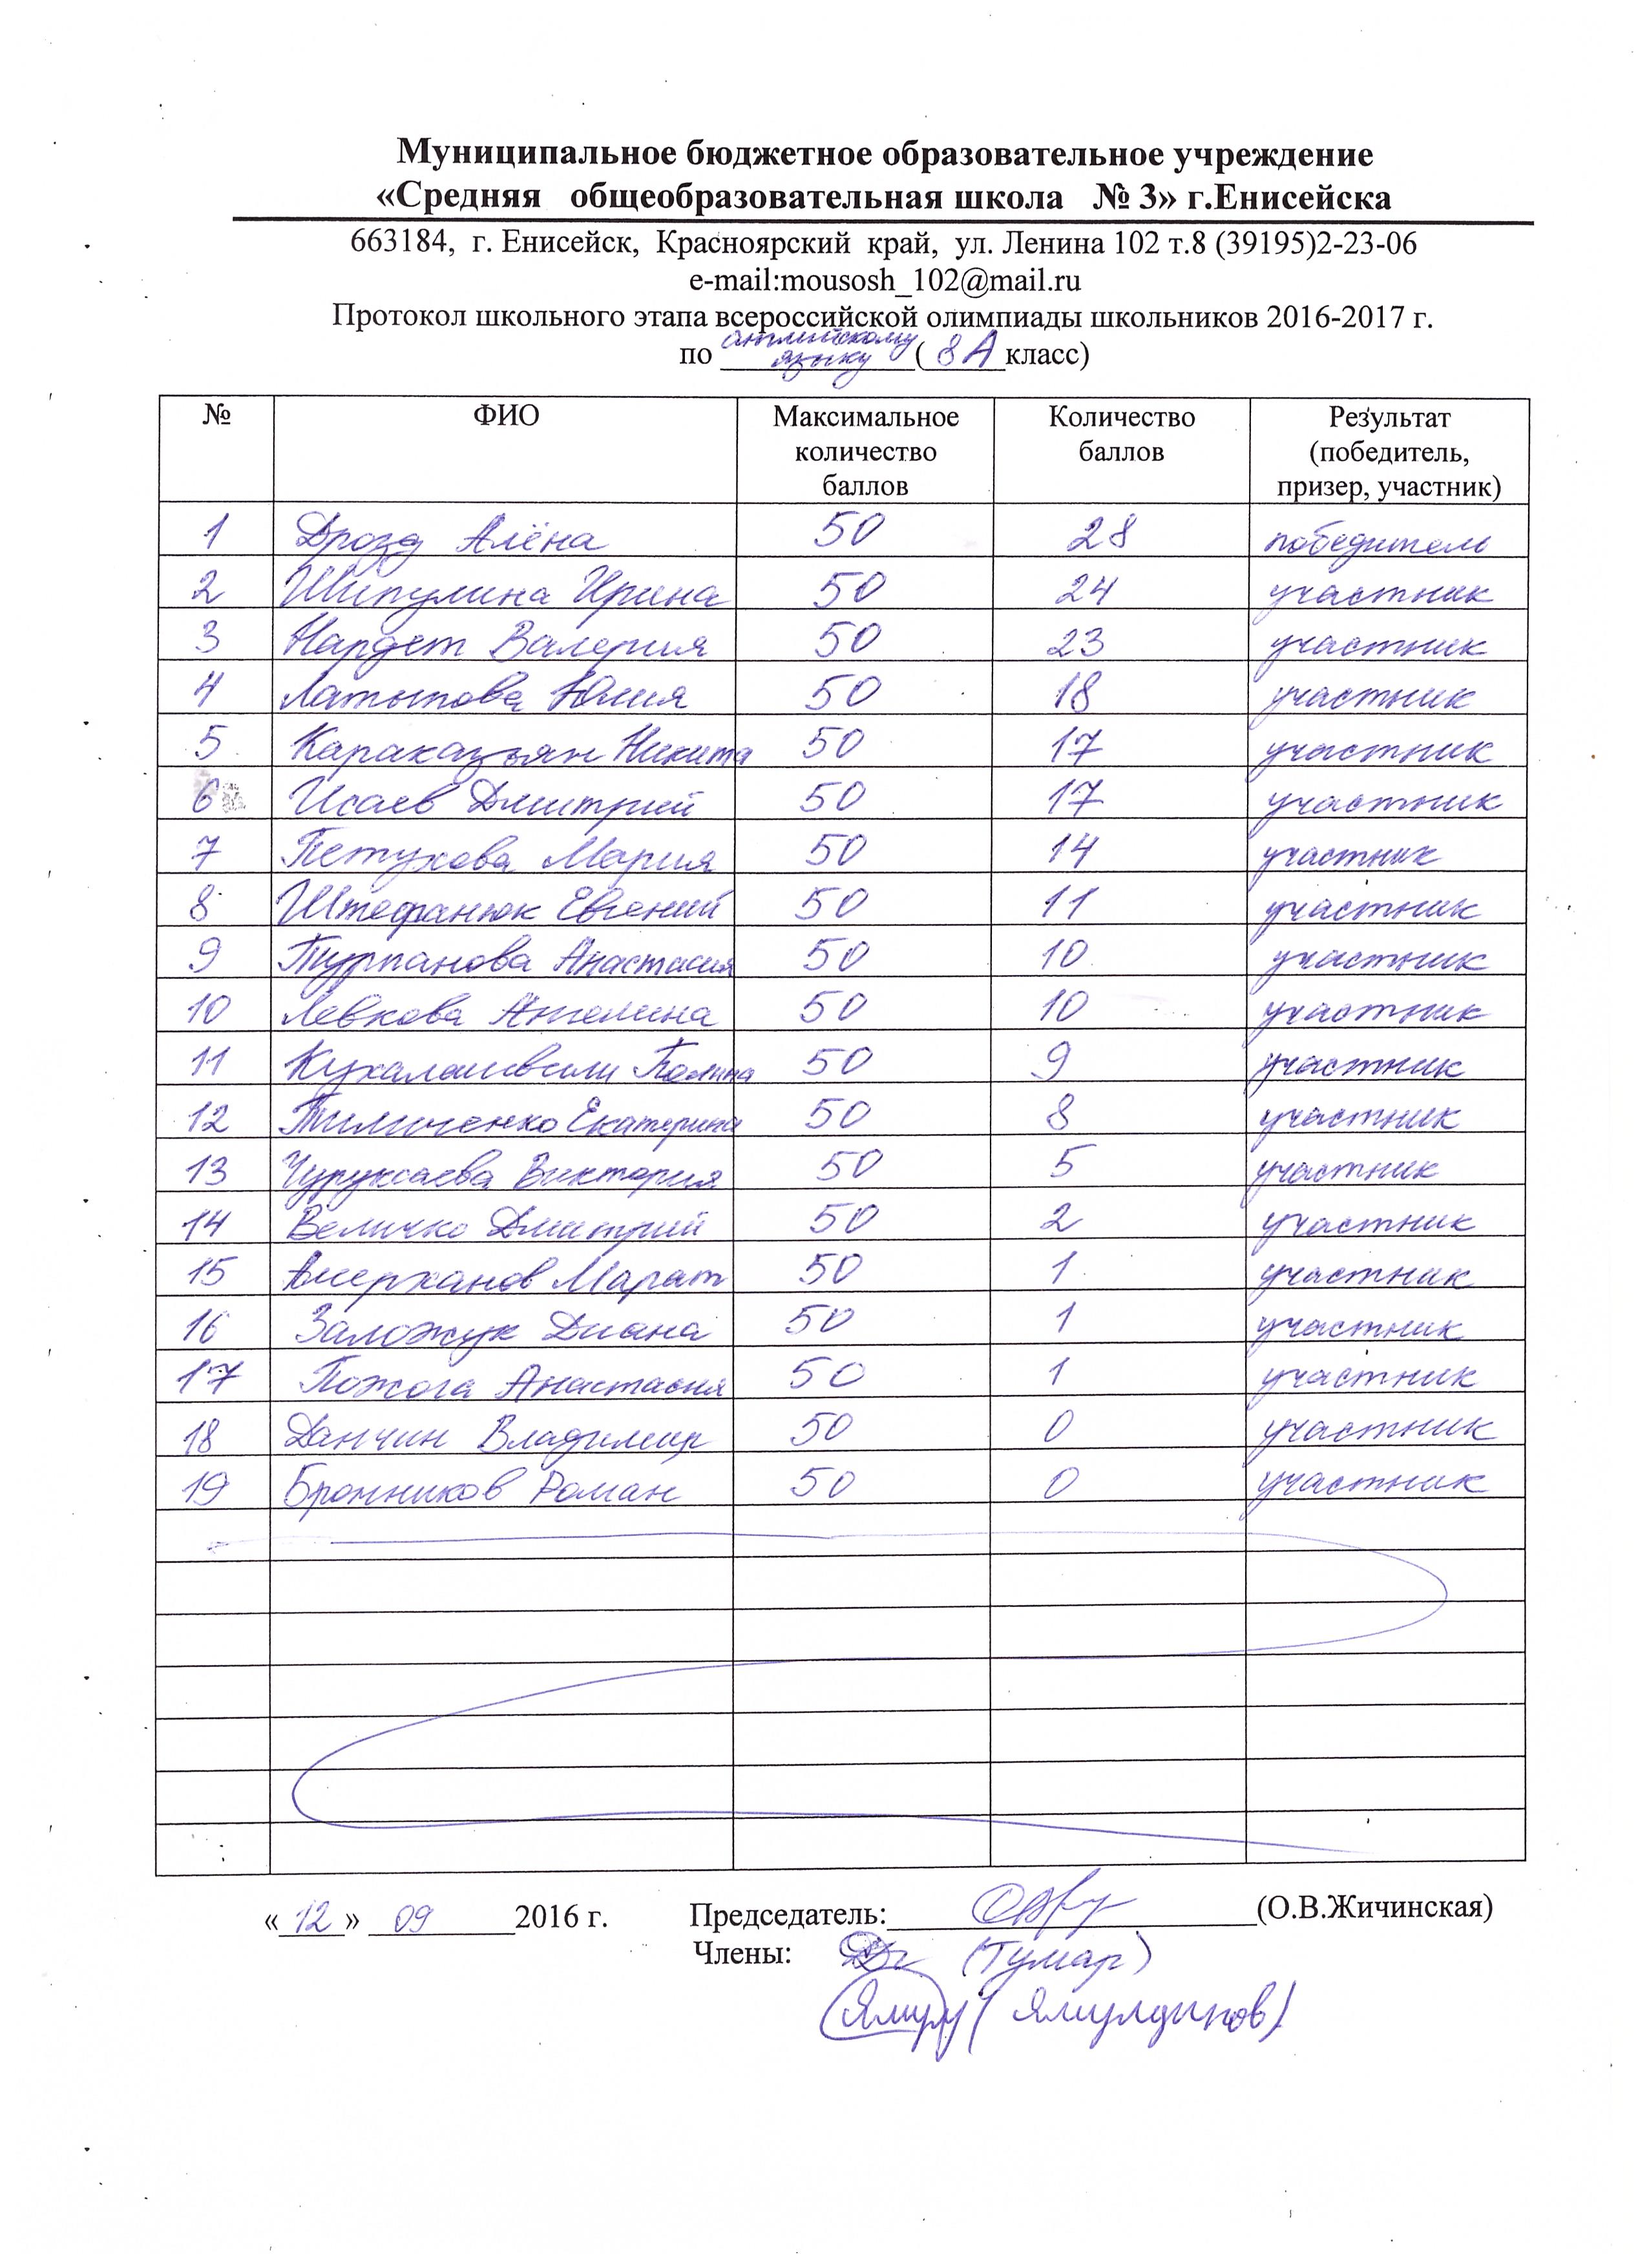 Муниципальное бюджетное образовательное учреждение
«Средняя общеобразовательная школа № 3» г.Енисейска
663184, г. Енисейск, Красноярский край, ул. Ленина 102 т.8 (39195)2-23-06
e-mail:mousosh_102@mail.ru
Протокол школьного этапа всероссийской олимпиады школьников 2016-2017 г.
по английскому языку (8А класс)
№ ФИО Максимальное количество баллов Количество баллов Результат (победитель, призер, участник)
1 Дрозд Алёна 50 28 победитель
2 Шипулина Ирина 50 24 участник
3 Нардет Валерия 50 23 участник
4 Латыпова Юлия 50 18 участник
5 Караказьян Никита 50 17 участник
6 Исаев Дмитрий 50 17 участник
7 Петухова Мария 50 14 участник
8 Штефанюк Евгений 50 11 участник
9 Турпанова Анастасия 50 10 участник
10 Левкова Ангелина 50 10 участник
11 Кухалашвили Полина 50 9 участник
12 Тимиченко Екатерина 50 8 участник
13 Чуруксаева Виктория 50 5 участник
14 Величко Дмитрий 50 2 участник
15 Амерханов Марат 50 1 участник
16 Заложук Диана 50 1 участник
17 Пожога Анастасия 50 1 участник
18 Данчин Владимир 50 0 участник
19 Бронников Роман 50 0 участник
«12» 09 2016 г. Председатель: (О.В.Жичинская)
Члены: (Тумар)
(Ямулдинов)